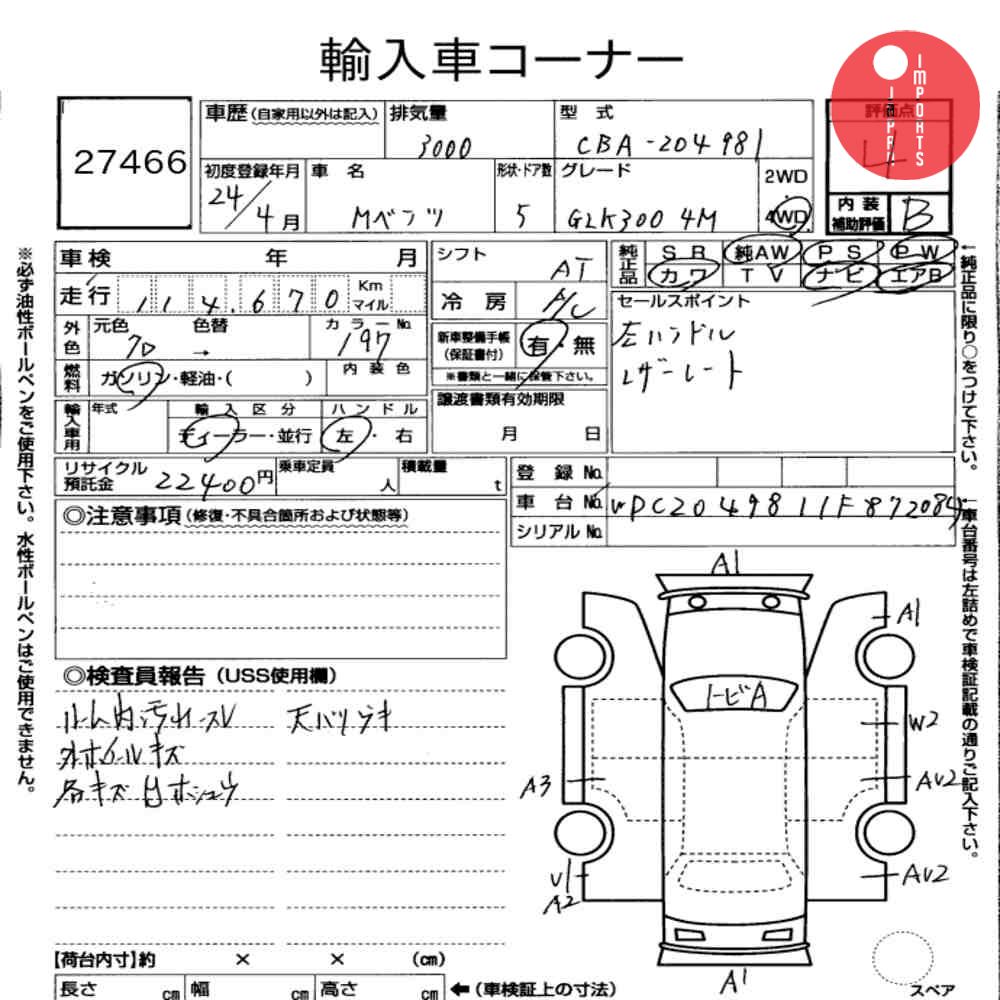 輸入車コーナー
JAPAN IMPORTS
27466
車歴(自家用以外は記入)
排気量
3000
型 式
CBA-204981
評価点
4
初度登録年月
24/4月
車 名
Mベンツ
形状・ドア数
5
グレード
GLK300 4M
2WD
・
4WD
内 装
補助評価
B
車検 年 月
走行 114,670 Km マイル
外色
元色 クロ
色替 →
カラーNo.
197
燃料
ガソリン・軽油・( )
内装色
輸入車用
年式
輸入区分
ディーラー・並行
ハンドル
左・右
シフト
AT
冷房
A/C
新車整備手帳
(保証書付)
有・無
※書類と一緒に保管下さい。
譲渡書類有効期限
月 日
純正品
SR 純AW PS PW
カワ TV ナビ エアB
セールスポイント
左ハンドル
レザーシート
リサイクル
預託金
22400円
乗車定員
人
積載量
t
登録No.
車台No. WDC2049811F872084
シリアルNo.
◎注意事項(修復・不具合箇所および状態等)
◎検査員報告(USS使用欄)
ルーム内汚れスレ 天バリシキ
外ホイールキズ
各キズ
A1
A1
トビA
W2
A3
AV2
V1
A2
AV2
A1
【荷台内寸】約 × × (cm)
長さ cm 幅 cm 高さ cm ←(車検証上の寸法)
スペア
※必ず油性ボールペンをご使用下さい。水性ボールペンはご使用できません。
←純正品に限り○をつけて下さい。
車台番号は左詰めで車検証記載の通りご記入下さい。